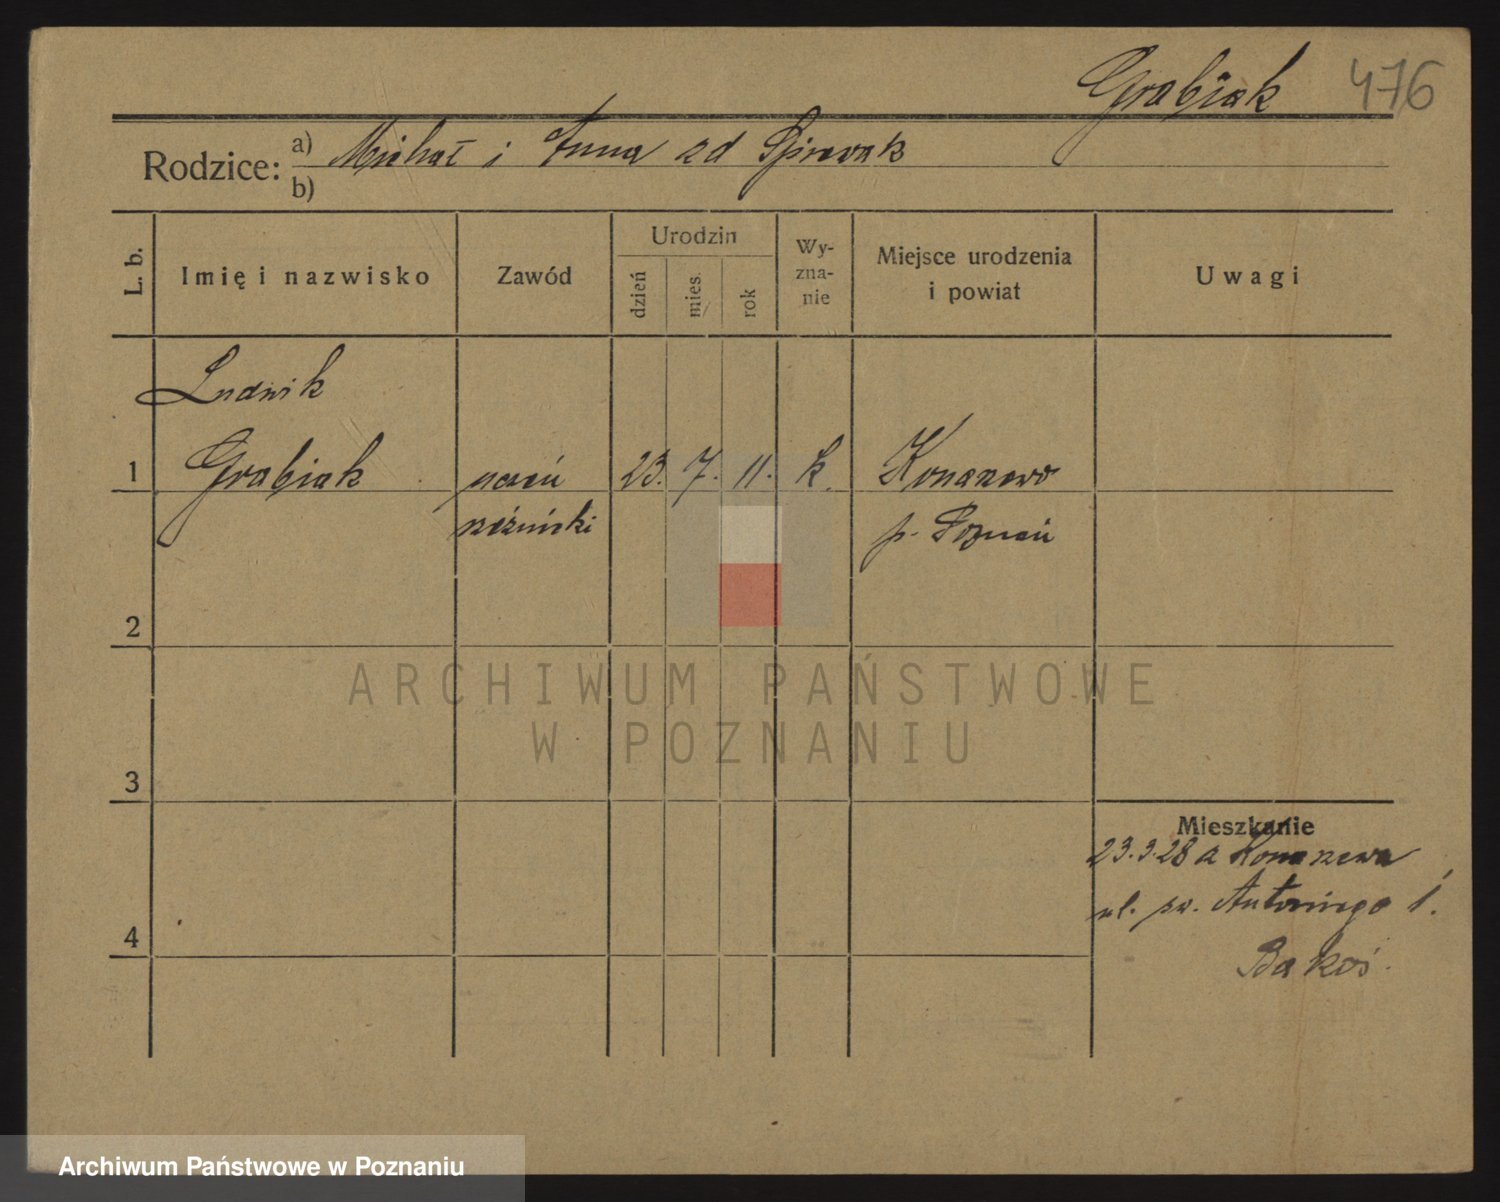 Grabiak 476
Rodzice: a) Michał i Anna zd Śpiewak
b)
L. b.
Imię i nazwisko
Zawód
Urodzin
dzień
mies.
rok
Wy-
zna-
nie
Miejsce urodzenia
i powiat
Uwagi
Ludwik
1 Grabiak uczeń 23. 7. 11. k. Konarzewo
rzeźnicki p. Poznań
2
3
4
Mieszkanie
23.3.28 a Konarzewa
ul. św. Antoniego 1.
Bakoś.
ARCHIWUM PAŃSTWOWE
W POZNANIU
Archiwum Państwowe w Poznaniu